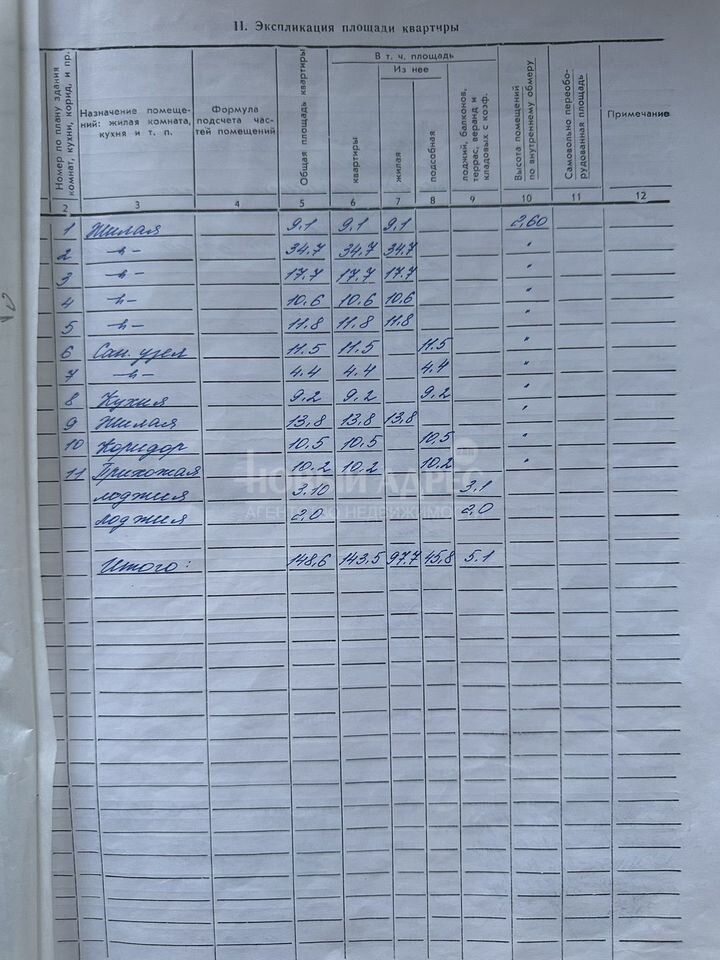 II. Экспликация площади квартиры
Номер по плану здания комнат, кухни, корид. и пр.
Назначение помеще-
ний: жилая комната,
кухня и т. п.
Формула
подсчета час-
тей помещений
Общая площадь квартиры
В т. ч. площадь
квартиры
Из нее
жилая
подсобная
лоджий, балконов,
террас, веранд и
кладовых с коэф.
Высота помещений
по внутреннему обмеру
Самовольно переобо-
рудованная площадь
Примечание
2 3 4 5 6 7 8 9 10 11 12
1 Жилая 9,1 9,1 9,1 2,60
2 -"- 34,7 34,7 34,7 "
3 -"- 17,7 17,7 17,7 "
4 -"- 10,6 10,6 10,6 "
5 -"- 11,8 11,8 11,8 "
6 Сан. узел 11,5 11,5 11,5 "
7 -"- 4,4 4,4 4,4 "
8 Кухня 9,2 9,2 9,2 "
9 Жилая 13,8 13,8 13,8 "
10 Коридор 10,5 10,5 10,5 "
11 Прихожая 10,2 10,2 10,2 "
лоджия 3,10 3,1
лоджия 2,0 2,0
Итого: 148,6 143,5 97,7 45,8 5.1
НОВЫЙ АДРЕС
АГЕНТСТВО НЕДВИЖИМО